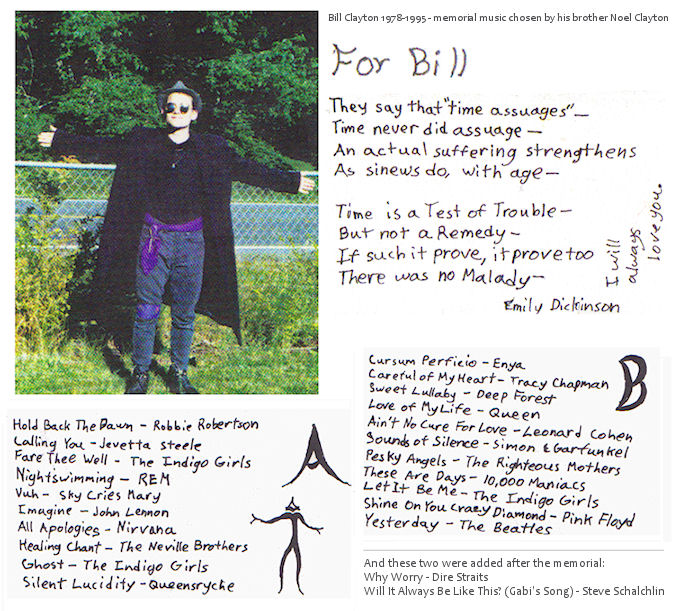 Bill Clayton 1978-1995 - memorial music chosen by his brother Noel Clayton
For Bill
They say that "time assuages" —
Time never did assuage —
An actual suffering strengthens
As sinews do, with age —
Time is a Test of Trouble —
But not a Remedy —
If such it prove, it prove too
There was no Malady —
Emily Dickinson
I will
always
love you.
A
Hold Back The Dawn - Robbie Robertson
Calling You - Jevetta Steele
Fare Thee Well - The Indigo Girls
Nightswimming - REM
Vuh - Sky Cries Mary
Imagine - John Lennon
All Apologies - Nirvana
Healing Chant - The Neville Brothers
Ghost - The Indigo Girls
Silent Lucidity - Queensrycke
B
Cursum Perficio - Enya
Careful of My Heart - Tracy Chapman
Sweet Lullaby - Deep Forest
Love of My Life - Queen
Ain't No Cure For Love - Leonard Cohen
Sounds of Silence - Simon & Garfunkel
Pesky Angels - The Righteous Mothers
These Are Days - 10,000 Maniacs
Let It Be Me - The Indigo Girls
Shine On You Crazy Diamond - Pink Floyd
Yesterday - The Beatles
And these two were added after the memorial:
Why Worry - Dire Straits
Will It Always Be Like This? (Gabi's Song) - Steve Schalchlin